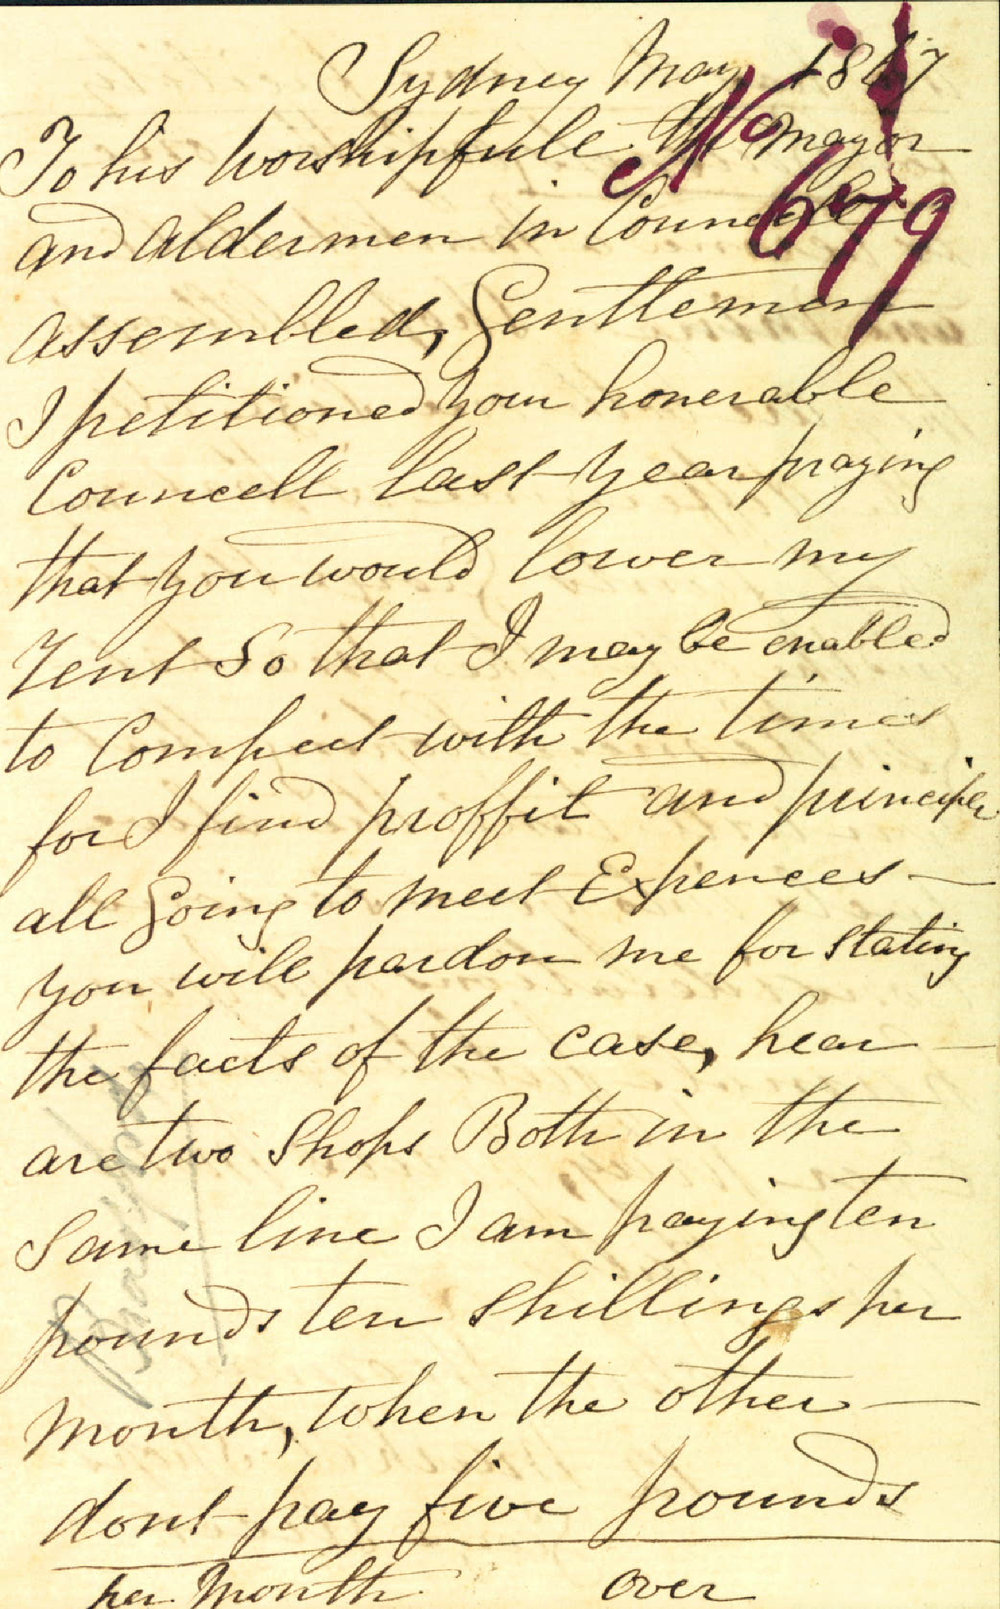 Sydney May 1867
No 679
To his worshipfull the Mayor
and aldermen in Councell
assembled, Gentlemen
I petitioned your honerable
Councell last year praying
that you would lower my
rent So that I may be enabled
to Compeet with the times
for I find proffit and principle
all Going to meet Expences —
you will pardon me for stating
the facts of the case, hear —
are two Shops Both in the
Same line I am paying ten
pounds ten shillings per
month, when the other —
dont pay five pounds
per Month over